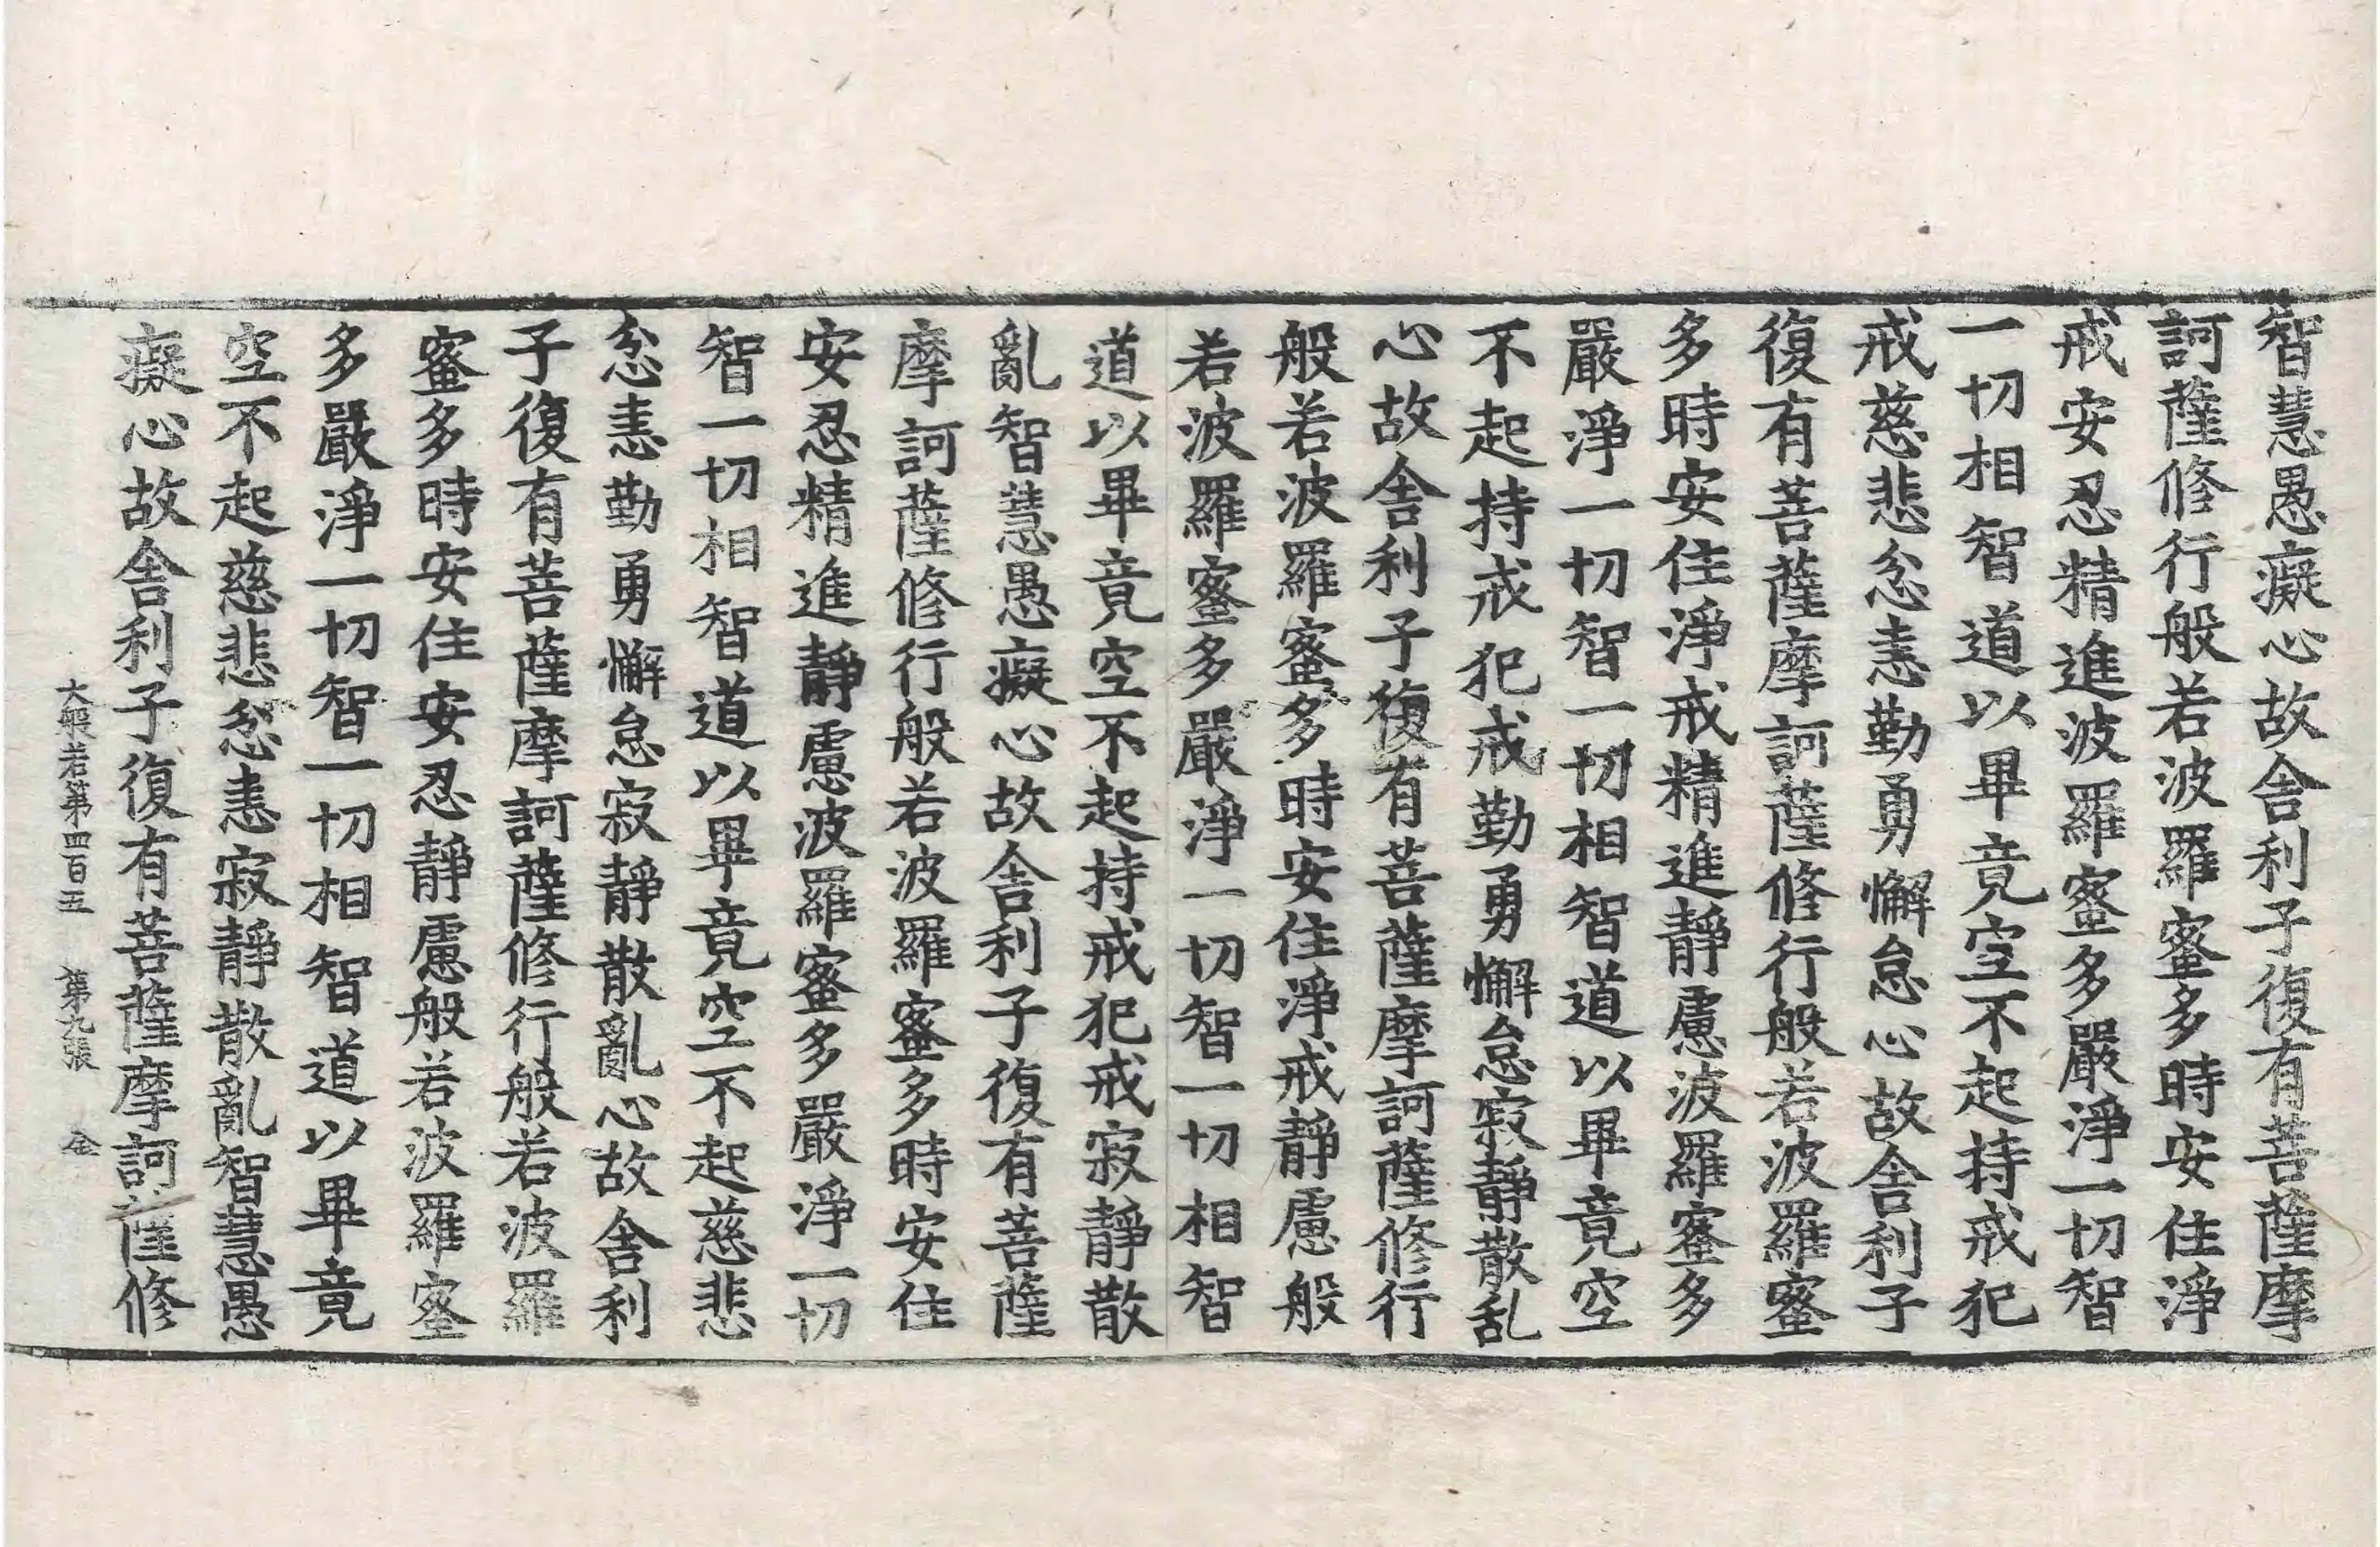 智慧愚癡心故舍利子復有菩薩摩
訶薩修行般若波羅蜜多時安住淨
戒安忍精進波羅蜜多嚴淨一切智
一切相智道以畢竟空不起持戒犯
戒慈悲忿恚勤勇懈怠心故舍利子
復有菩薩摩訶薩修行般若波羅蜜
多時安住淨戒精進靜慮波羅蜜多
嚴淨一切智一切相智道以畢竟空
不起持戒犯戒勤勇懈怠寂靜散乱
心故舍利子復有菩薩摩訶薩修行
般若波羅蜜多時安住淨戒靜慮般
若波羅蜜多嚴淨一切智一切相智
道以畢竟空不起持戒犯戒寂靜散
亂智慧愚癡心故舍利子復有菩薩
摩訶薩修行般若波羅蜜多時安住
安忍精進靜慮波羅蜜多嚴淨一切
智一切相智道以畢竟空不起慈悲
忿恚勤勇懈怠寂靜散亂心故舍利
子復有菩薩摩訶薩修行般若波羅
蜜多時安住安忍靜慮般若波羅蜜
多嚴淨一切智一切相智道以畢竟
空不起慈悲忿恚寂靜散亂智慧愚
癡心故舍利子復有菩薩摩訶薩修
大般若第四百五 第九張 金